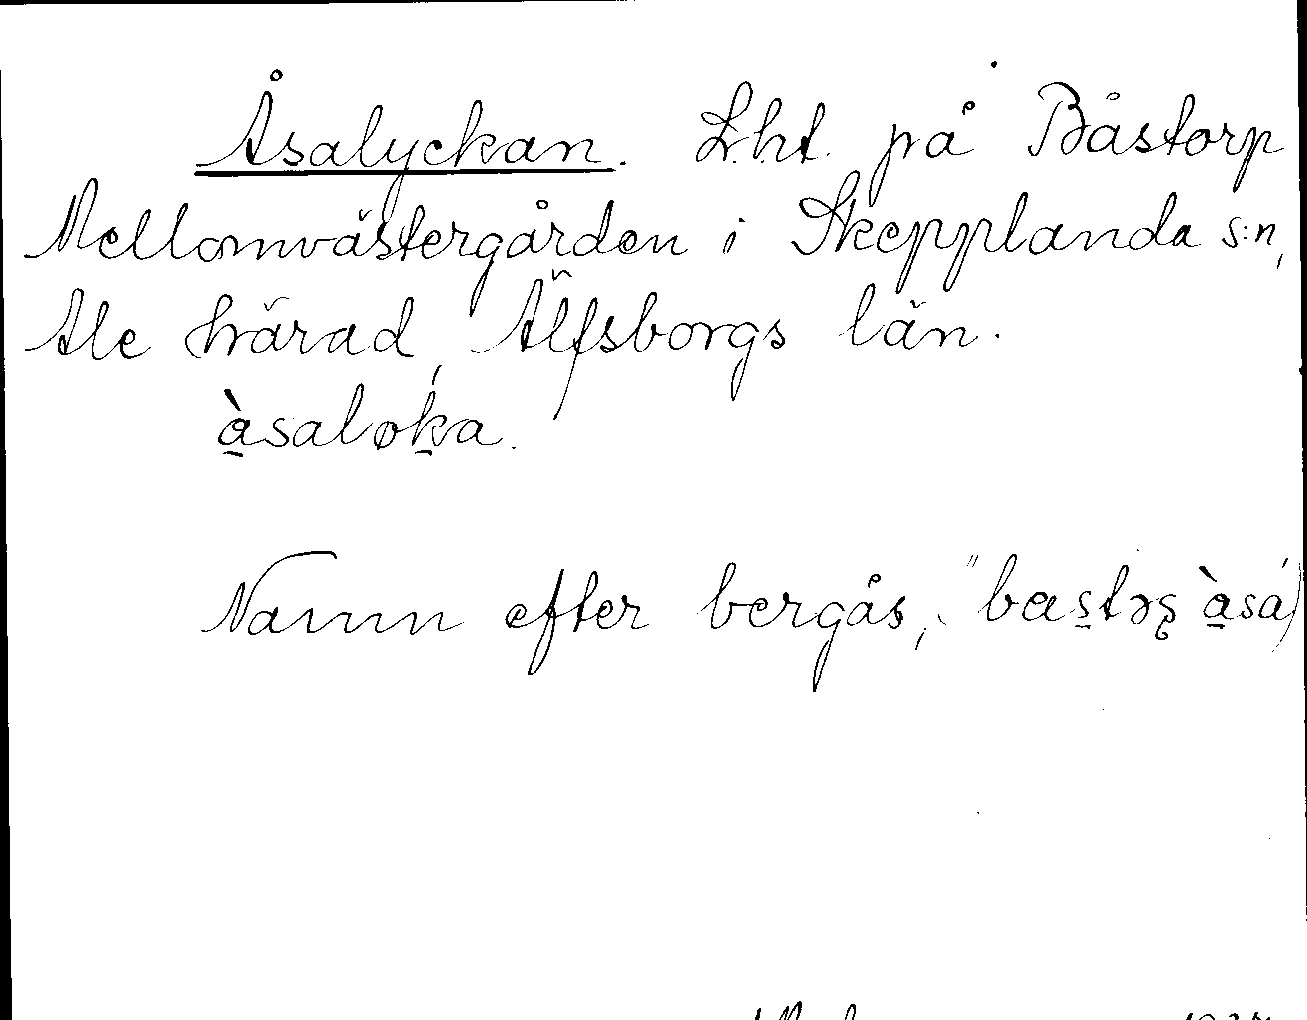 Åsalyckan. Lht. på Båstorp
Mellomvästergården i Skepplanda s:n,
Ale härad, Älfsborgs län.
àsaløka.
Namn efter bergås, "bastəʂ àsa"